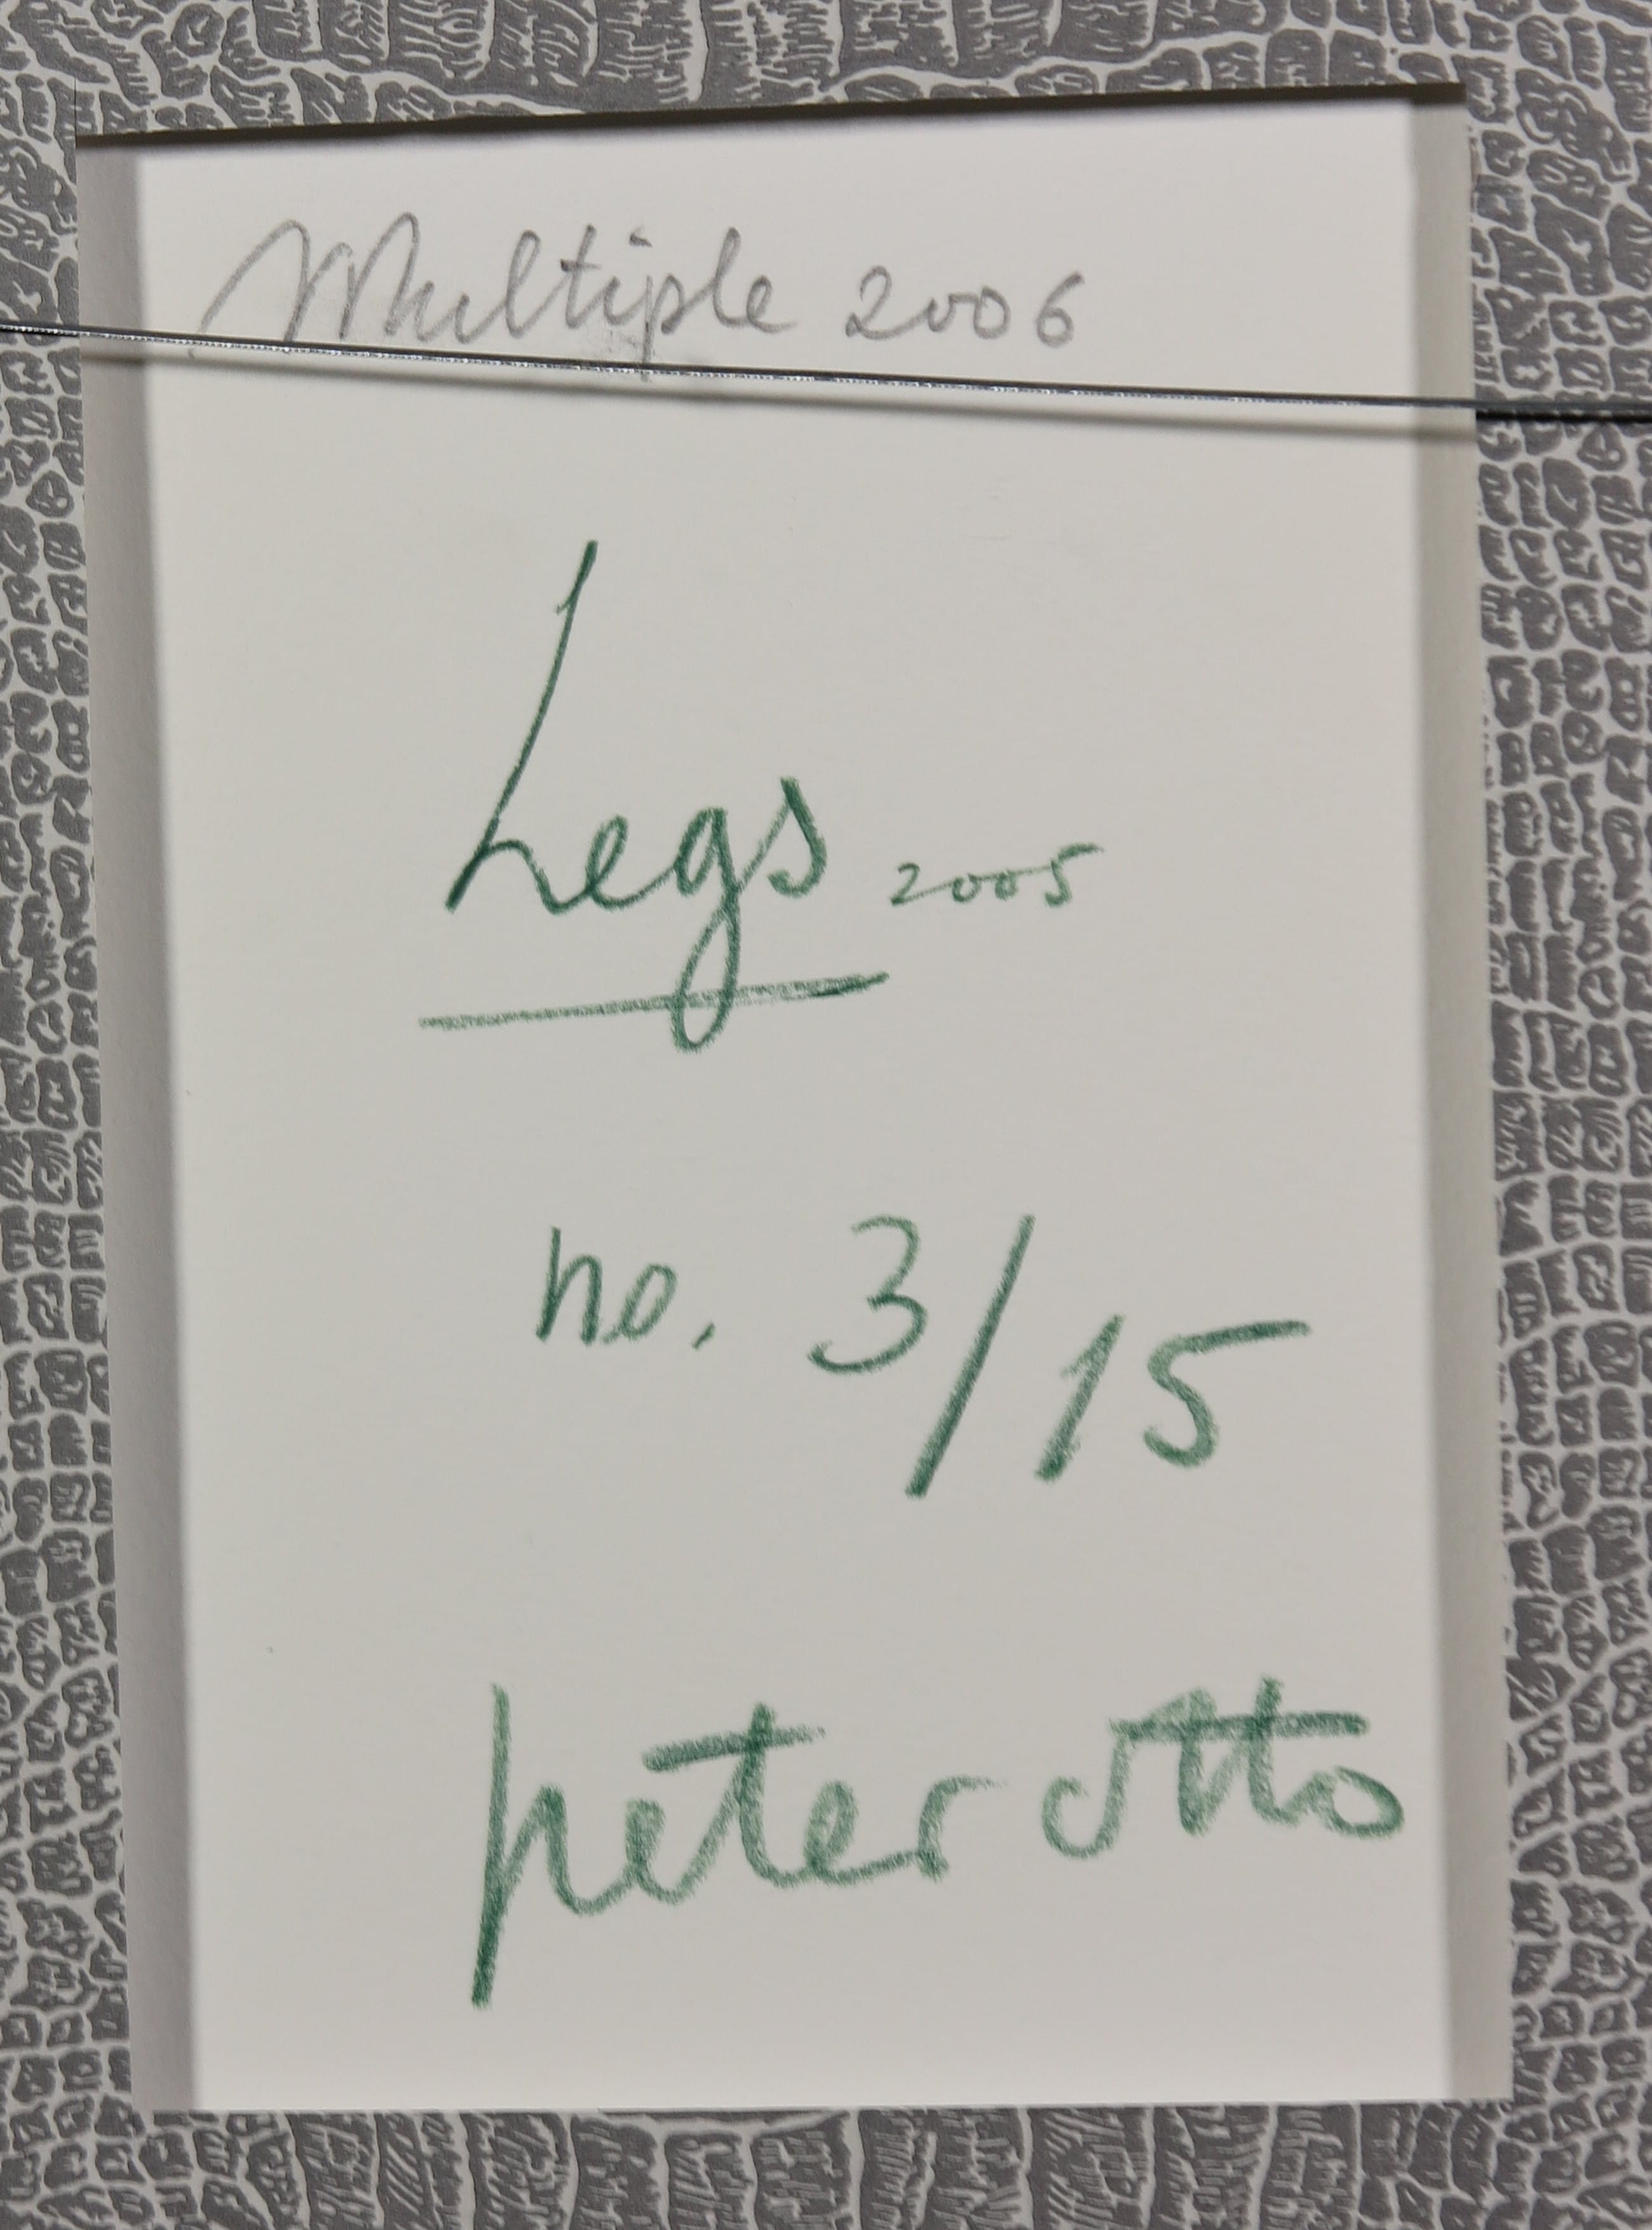 Multiple 2006
Legs 2005
no. 3/15
peter otto